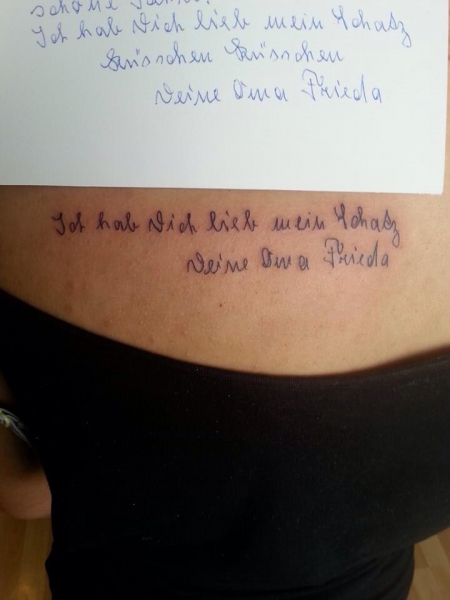 schöne
Ich hab Dich lieb mein Schatz
Küsschen Küsschen
Deine Oma Frieda
Ich hab Dich lieb mein Schatz
Deine Oma Frieda